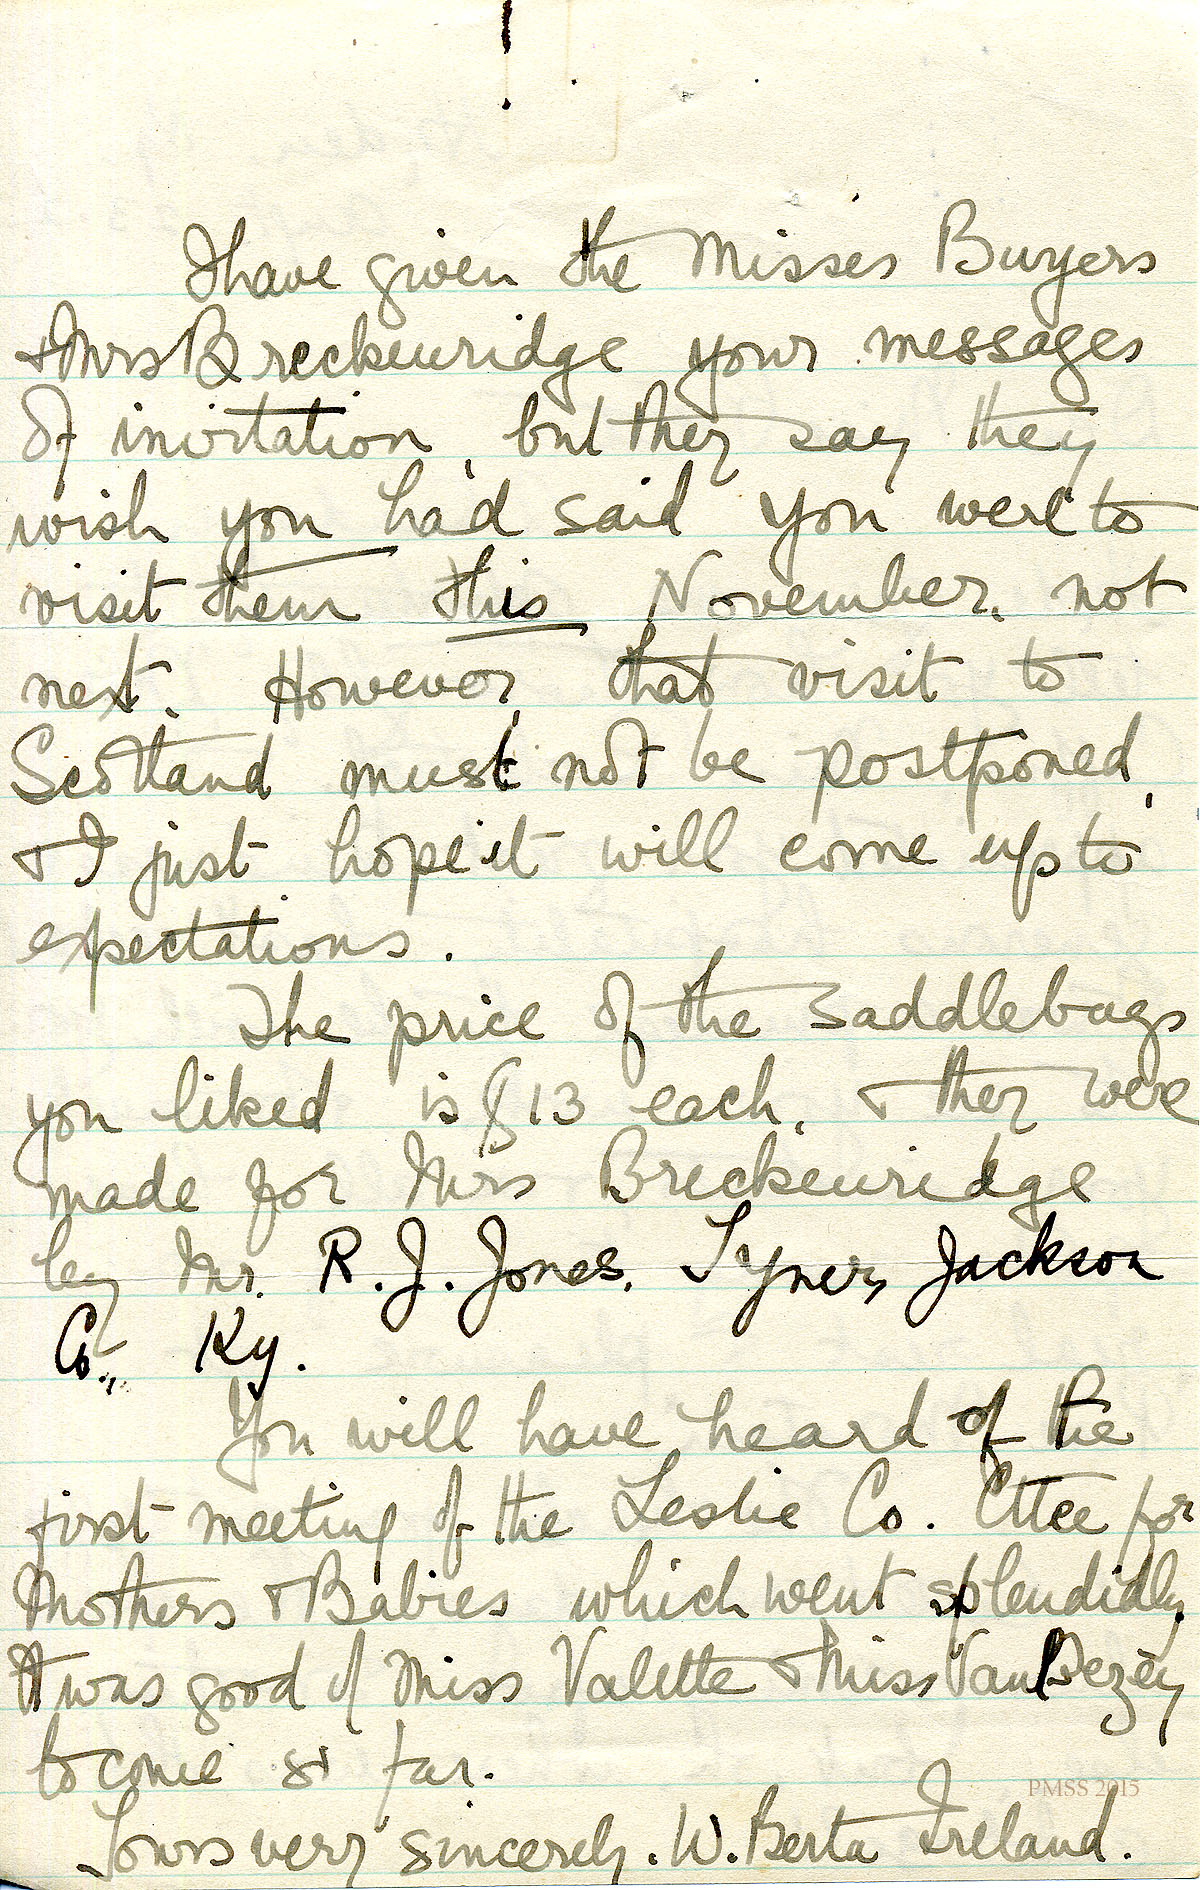 I have given the Misses Buyers
+ Mrs Breckenridge your messages
of invitation, but they say they
wish you had said you were to
visit them this November, not
next. However, that visit to
Scotland must not be postponed,
+ I just hope it will come up to
expectations.
The price of the saddlebags
you liked is $13 each, + they were
made for Mrs Breckenridge
by Mr. R. J. Jones, Tyner, Jackson
Co., Ky.
You will have heard of the
first meeting of the Leslie Co. Cttee for
Mothers + Babies which went splendidly
It was good of Miss Valette + Miss Van
to come so far.
PMSS 2015
Yours very sincerely. W. Berta Ireland.